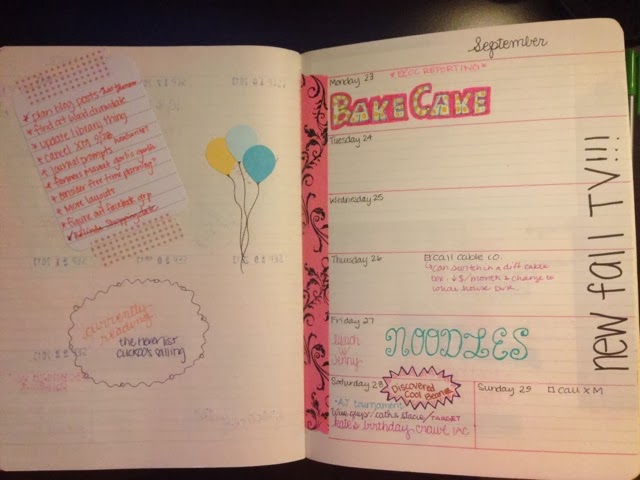 * plan blog posts
* find art
* update library thing
* cancel XM
* journal prompts
* farmers market
* consider free time planning?
* More layouts
* figure out facebook grp
currently
reading
the never list
cuckoo's calling
September
Monday 23
REPORTING*
BAKE CAKE
Tuesday 24
Wednesday 25
Thursday 26
☐ call cable co.
can switch in a diff cable
box - ↓$/month & change to
whole house DVR.
Friday 27
lunch
w
Jenny
NOODLES
Saturday 28
Discovered
Cool Beans
• AJ tournament
Wise guys/cath & stacie/TARGET
kate's birthday crawl
Sunday 29
☐ call XM
new fall TV!!!